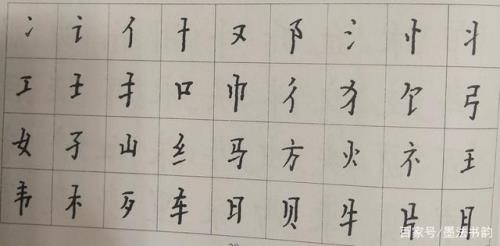 冫 讠 亻 扌 又 阝 氵 忄 丬
工 土 扌 口 巾 彳 犭 饣 弓
女 子 山 纟 马 方 火 礻 王
韦 木 歹 车 日 贝 牛 片 月
百家号/墨法书韵